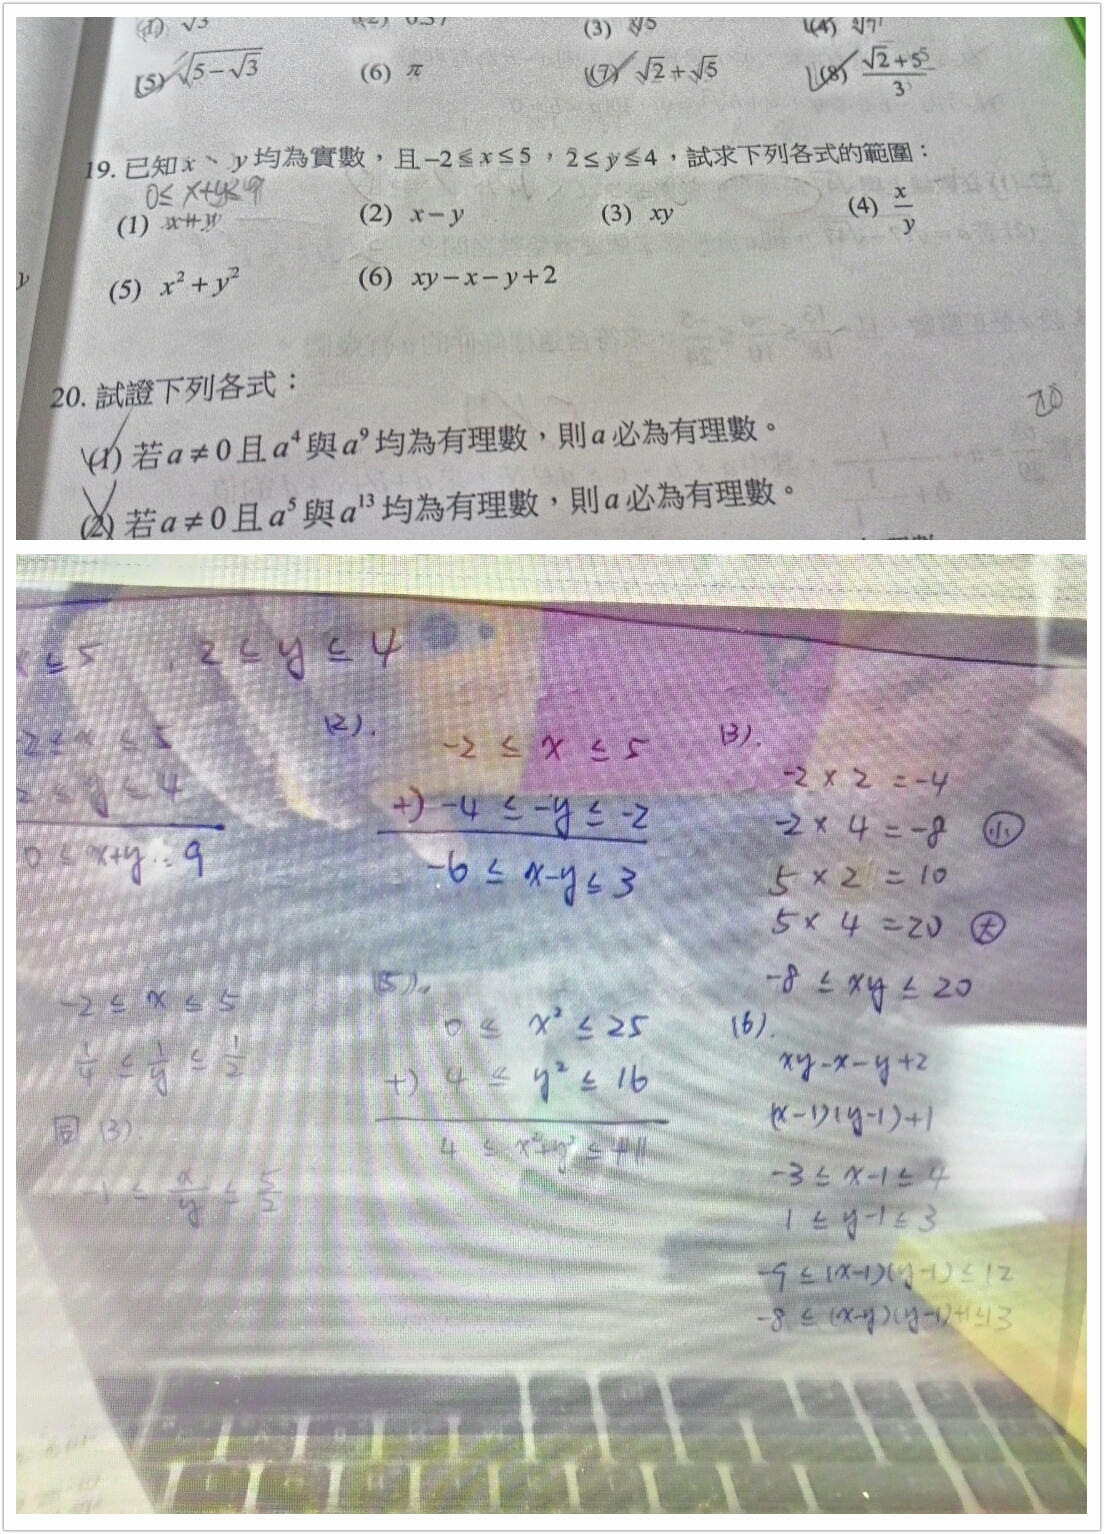 (3) ∛5
(5) √(5−√3) (6) π (7) √2+√5 (8) (√2+5√5)/3
19. 已知x、y均為實數，且−2≦x≤5，2≤y≤4，試求下列各式的範圍：
0≤x+y≤9
(1) x+y (2) x−y (3) xy (4) x/y
(5) x²+y² (6) xy−x−y+2
20. 試證下列各式：
(1) 若a≠0且a⁴與a⁹均為有理數，則a必為有理數。
(2) 若a≠0且a⁵與a¹³均為有理數，則a必為有理數。
x≤5, 2≤y≤4
-2≤x≤5
2≤y≤4
0≤x+y≤9
(2).
-2≤x≤5
+) -4≤-y≤-2
-6≤x-y≤3
(3).
-2×2=-4
-2×4=-8 小
5×2=10
5×4=20 大
-8≤xy≤20
-2≤x≤5
1/4≤1/y≤1/2
同(3).
1≤x/y≤5/2
(5).
0≤x²≤25
+) 4≤y²≤16
4≤x²+y²≤41
(6).
xy-x-y+2
(x-1)(y-1)+1
-3≤x-1≤4
1≤y-1≤3
-9≤(x-1)(y-1)≤12
-8≤(x-y)(y-1)+1≤13